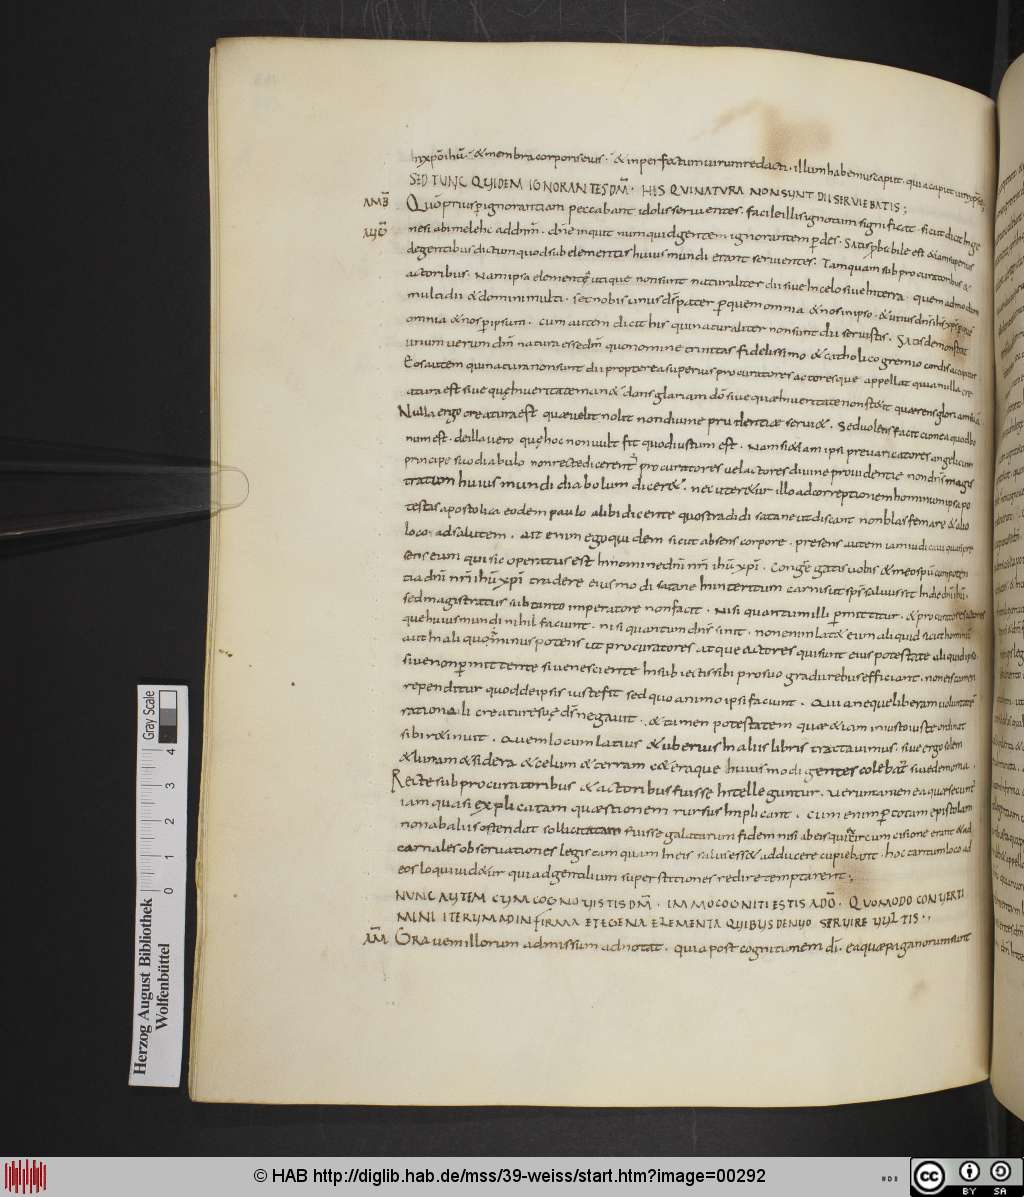 In xpo ihu · & membra corporis eius · & in perfectum uirum redacti · illum habemus caput · qui a caput uiri xps est;
SED TUNC QUIDEM IGNORANTES DM · HIS QUI NATURA NON SUNT DII SERVIEBATIS;
AMB Quo prius p ignorantiam peccabant idolis seruientes · facile illis ignotum significat · sicut dicit In ge
AUG nesi abimelehc ad dnm · dne inquit numquid gentem ignorantem pdes · Satis pbabile est & iam superius
degentibus dictum quod sub elementis huius mundi erant seruientes · Tamquam sub procuratoribus &
actoribus · Nam ipsa elementa utique non sunt naturaliter dii siue In celo siue In terra · quem ad modum
multi dii & domini multi · set nobis unus ds pater p quem omnia & nos in ipso · & unus dns ihs xps p que
omnia & nos p ipsum · cum autem dicit his qui naturaliter non sunt dii seruistis · Satis demonstrat
unum uerum dm natura esse dm quo nomine trinitas fidelissimo & catholico gremio cordis accipitur
Eos autem qui natura non sunt dii propterea superius procuratores actoresque appellat quia nulla cre
atura est siue que In ueritate man& dans gloriam do siue quae In ueritate non st&it quaerens gloriam suam
Nulla ergo creatura est quae uelit nolit non diuine prudentiae serui& · Sed uolens facit cum ea quod bo
num est · de illa uero que hoc non uult fit quod iustum est · Nam si &iam ipsi preuaricatores angeli cum
principe suo diabulo non recte dicerent procuratores uel actores diuine prouidentie non dns magis
tratum huius mundi diabolum diceret · nec uteretur illo ad correptionem hominum ipsa po
testas apostolica eodem paulo alibi dicente quos tradidi satane ut discant non blasfemare & alio
loco ad salutem · Ait enim ego quidem sicut absens corpore · presens autem iam iudicaui quasi pre
sens eum qui sic operatus est In nomine dni nri ihu xpi · Congregatis uobis & meo spu cum poten
tia dni nri ihu xpi tradere eiusmodi satane In interitum carnis ut sps saluus sit In die dni ihu ·
sed magistratus sub tanto imperatore non facit · Nisi quantum illi pmittitur · & procuratores actores
que huius mundi nihil faciunt · nisi quantum dns sinit · non enim lat& eum aliquid sicut hominem
aut In aliquo minus potens ut procuratores atque actores qui sunt eius potestate aliquid ipso
siue non pmittente siue nesciente In subiectis sibi pro suo gradu rebus efficiant · non eis tamen
rependitur quod de ipsis iuste fit sed quo animo ipsi faciunt · Quia neque liberam uoluntate
rationali creature sue ds negauit · & tamen potestatem qua &iam iniustos iuste ordinat
sibi r&inuit · Quem locum latius & uberius In aliis libris tractauimus · siue ergo solem
& lunam & sidera & celum & terram c&eraque huiusmodi gentes colebat siue demonia ·
Recte sub procuratoribus & actoribus fuisse Intelleguntur · Verumtamen ea quae secuntur
iam quasi explicatam quaestionem rursus Implicant · Cum enim p totam epistolam
non ab aliis ostendat sollicitatam fuisse galatarum fidem nisi ab eis qui ex circumcisione erant & ad
carnales obseruationes legis tamquam In eis salus ess& adducere cupiebant · hoc tantum loco ad
eos loqui uid&ur qui ad gentilium superstitiones redire temptarent;
NUNC AUTEM CUM COGNOUISTIS DM · IMMO COGNITI ESTIS A DO · QUOMODO CONUERTI
MINI ITERUM AD INFIRMA ET EGENA ELEMENTA QUIBUS DENUO SERUIRE UULTIS ·
AM Grauem illorum admissum adnotat · quia post cognitionem di · ea quae paganorum sunt
Herzog August Bibliothek
Wolfenbüttel
0 1 2 3 4
Gray Scale
© HAB http://diglib.hab.de/mss/39-weiss/start.htm?image=00292
CC BY SA